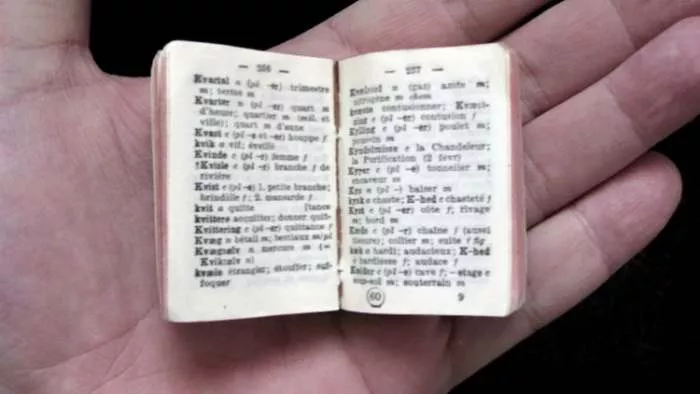 — 256 —
Kvartal n (pl -er) trimestre
m; terme m
Kvarter n (pl -er) quart m
d'heure; quartier m (mil. et
ville); quart m d'aune
Kvast c (pl -e et -er) houppe f
kvik a vif; éveillé
Kvinde c (pl -r) femme f
†Kvisle c (pl -r) branche f de
rivière
Kvist c (pl -e) 1. petite branche;
brindille f; 2. mansarde f
kvit a quitte [tance
kvittere acquitter; donner quit-
Kvittering c (pl -er) quittance f
Kvæg n bétail m; bestiaux m/pl
Kvægsølv n mercure m (=
Kviksølv n)
kvæle étrangler; étouffer; suf-
foquer
— 257 —
(gas) azote m;
nitrogène m chem
contusionner; Kvæst-
ning c (pl -er) contusion f
Kylling c (pl -er) poulet m;
poussin m
Kyndelmisse c la Chandeleur;
la Purification (2 févr)
c (pl -e) tonnelier m;
encaveur m
Kys n (pl -) baiser m
kysk a chaste; K-hed c chasteté f
Kyst c (pl -er) côte f; rivage
m; bord m
c (pl -r) chaîne f (aussi
tissure); collier m; suite f fig
a hardi; audacieux; K-hed
c hardiesse f; audace f
Kælder c (pl -e) cave f; — etage c
sous-sol m; souterrain m
60 9